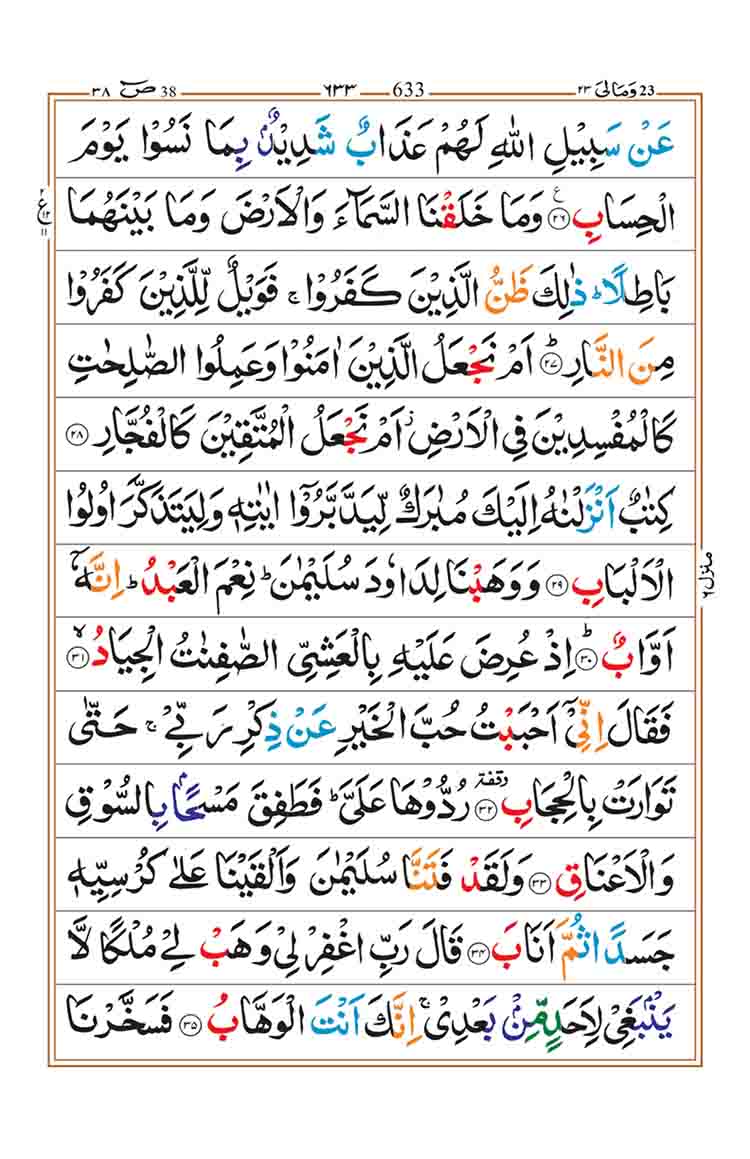 ٣٨ صٓ 38 ٦٣٣ 633 ٢٣ وَمَالِیَ 23
عَنْ سَبِیْلِ اللّٰهِ لَهُمْ عَذَابٌ شَدِیْدٌۢ بِمَا نَسُوْا یَوْمَ
الْحِسَابِ ۟۠ ﴿۲۶﴾ وَمَا خَلَقْنَا السَّمَآءَ وَالْاَرْضَ وَمَا بَیْنَهُمَا
بَاطِلًا ؕ ذٰلِكَ ظَنُّ الَّذِیْنَ كَفَرُوْا ۚ فَوَیْلٌ لِّلَّذِیْنَ كَفَرُوْا
مِنَ النَّارِ ؕ ﴿۲۷﴾ اَمْ نَجْعَلُ الَّذِیْنَ اٰمَنُوْا وَعَمِلُوا الصّٰلِحٰتِ
كَالْمُفْسِدِیْنَ فِی الْاَرْضِ ؗ اَمْ نَجْعَلُ الْمُتَّقِیْنَ كَالْفُجَّارِ ﴿۲۸﴾
كِتٰبٌ اَنْزَلْنٰهُ اِلَیْكَ مُبٰرَكٌ لِّیَدَّبَّرُوْۤا اٰیٰتِهٖ وَلِیَتَذَكَّرَ اُولُوا
الْاَلْبَابِ ﴿۲۹﴾ وَوَهَبْنَا لِدَاوٗدَ سُلَیْمٰنَ ؕ نِعْمَ الْعَبْدُ ؕ اِنَّهٗۤ
اَوَّابٌ ؕ ﴿۳۰﴾ اِذْ عُرِضَ عَلَیْهِ بِالْعَشِیِّ الصّٰفِنٰتُ الْجِیَادُ ۙ ﴿۳۱﴾
فَقَالَ اِنِّیْۤ اَحْبَبْتُ حُبَّ الْخَیْرِ عَنْ ذِكْرِ رَبِّیْ ۚ حَتّٰی
تَوَارَتْ بِالْحِجَابِ ﴿۳۲﴾ وقفة رُدُّوْهَا عَلَیَّ ؕ فَطَفِقَ مَسْحًۢا بِالسُّوْقِ
وَالْاَعْنَاقِ ﴿۳۳﴾ وَلَقَدْ فَتَنَّا سُلَیْمٰنَ وَاَلْقَیْنَا عَلٰی كُرْسِیِّهٖ
جَسَدًا ثُمَّ اَنَابَ ﴿۳۴﴾ قَالَ رَبِّ اغْفِرْ لِیْ وَهَبْ لِیْ مُلْكًا لَّا
یَنْۢبَغِیْ لِاَحَدٍ مِّنْۢ بَعْدِیْ ۚ اِنَّكَ اَنْتَ الْوَهَّابُ ﴿۳۵﴾ فَسَخَّرْنَا
منزل ٦